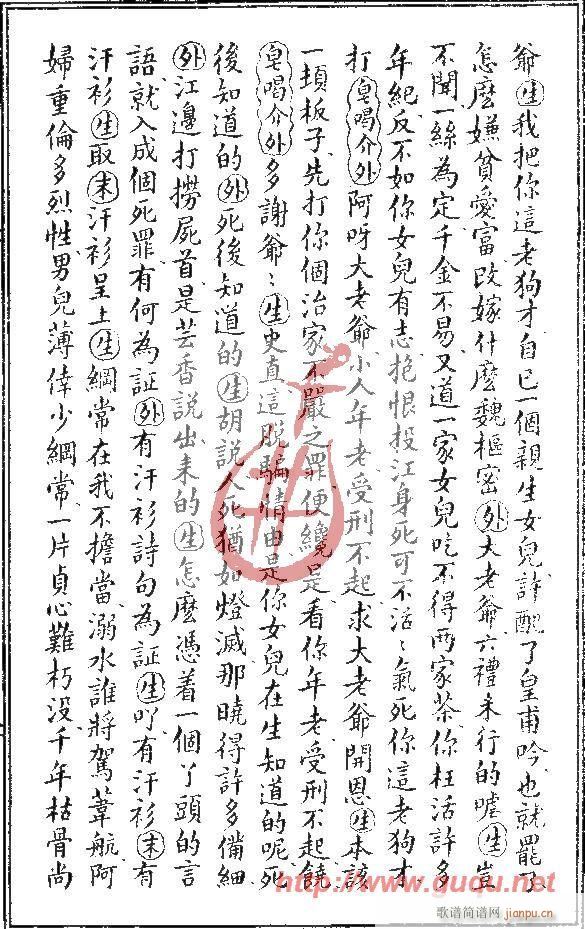 爺生我把你這老狗才自已一個親生女兒許配了皇甫吟也就罷了
怎麼嫌貧愛富改嫁什麼魏樞密外大老爺六禮未行的嘘生豈
不聞一絲為定千金不易又道一家女兒吃不得兩家茶你枉活許多
年紀反不如你女兒有志抱恨投江身死可不活〻氣死你這老狗才
打皂喝介外阿呀大老爺小人年老受刑不起求大老爺開恩生本該
一頓板子先打你個治家不嚴之罪便纔是看你年老受刑不起饒
皂喝介外多謝爺〻生史直這脫騙情由是你女兒在生知道的呢死
後知道的外死後知道的生胡說人死猶如燈滅那曉得許多備細
外江邊打撈屍首是芸香說出来的生怎麼憑着一個丫頭的言
語就入成個死罪有何為証外有汗衫詩句為証生吖有汗衫末有
汗衫生取末汗衫呈上生綱常在我不擔當溺水誰將駕葦航阿
婦重倫多烈性男兒薄倖少綱常一片貞心難朽没千年枯骨尚
http://www.guqu.net
歌谱简谱网
jianpu.cn